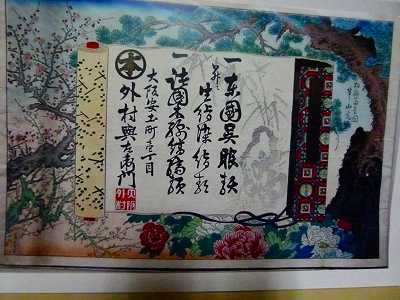 一東國呉服類
并
生絹染絹類
一諸國木綿
大阪安土町壱丁目
本
外村與左衛門
大阪
外村